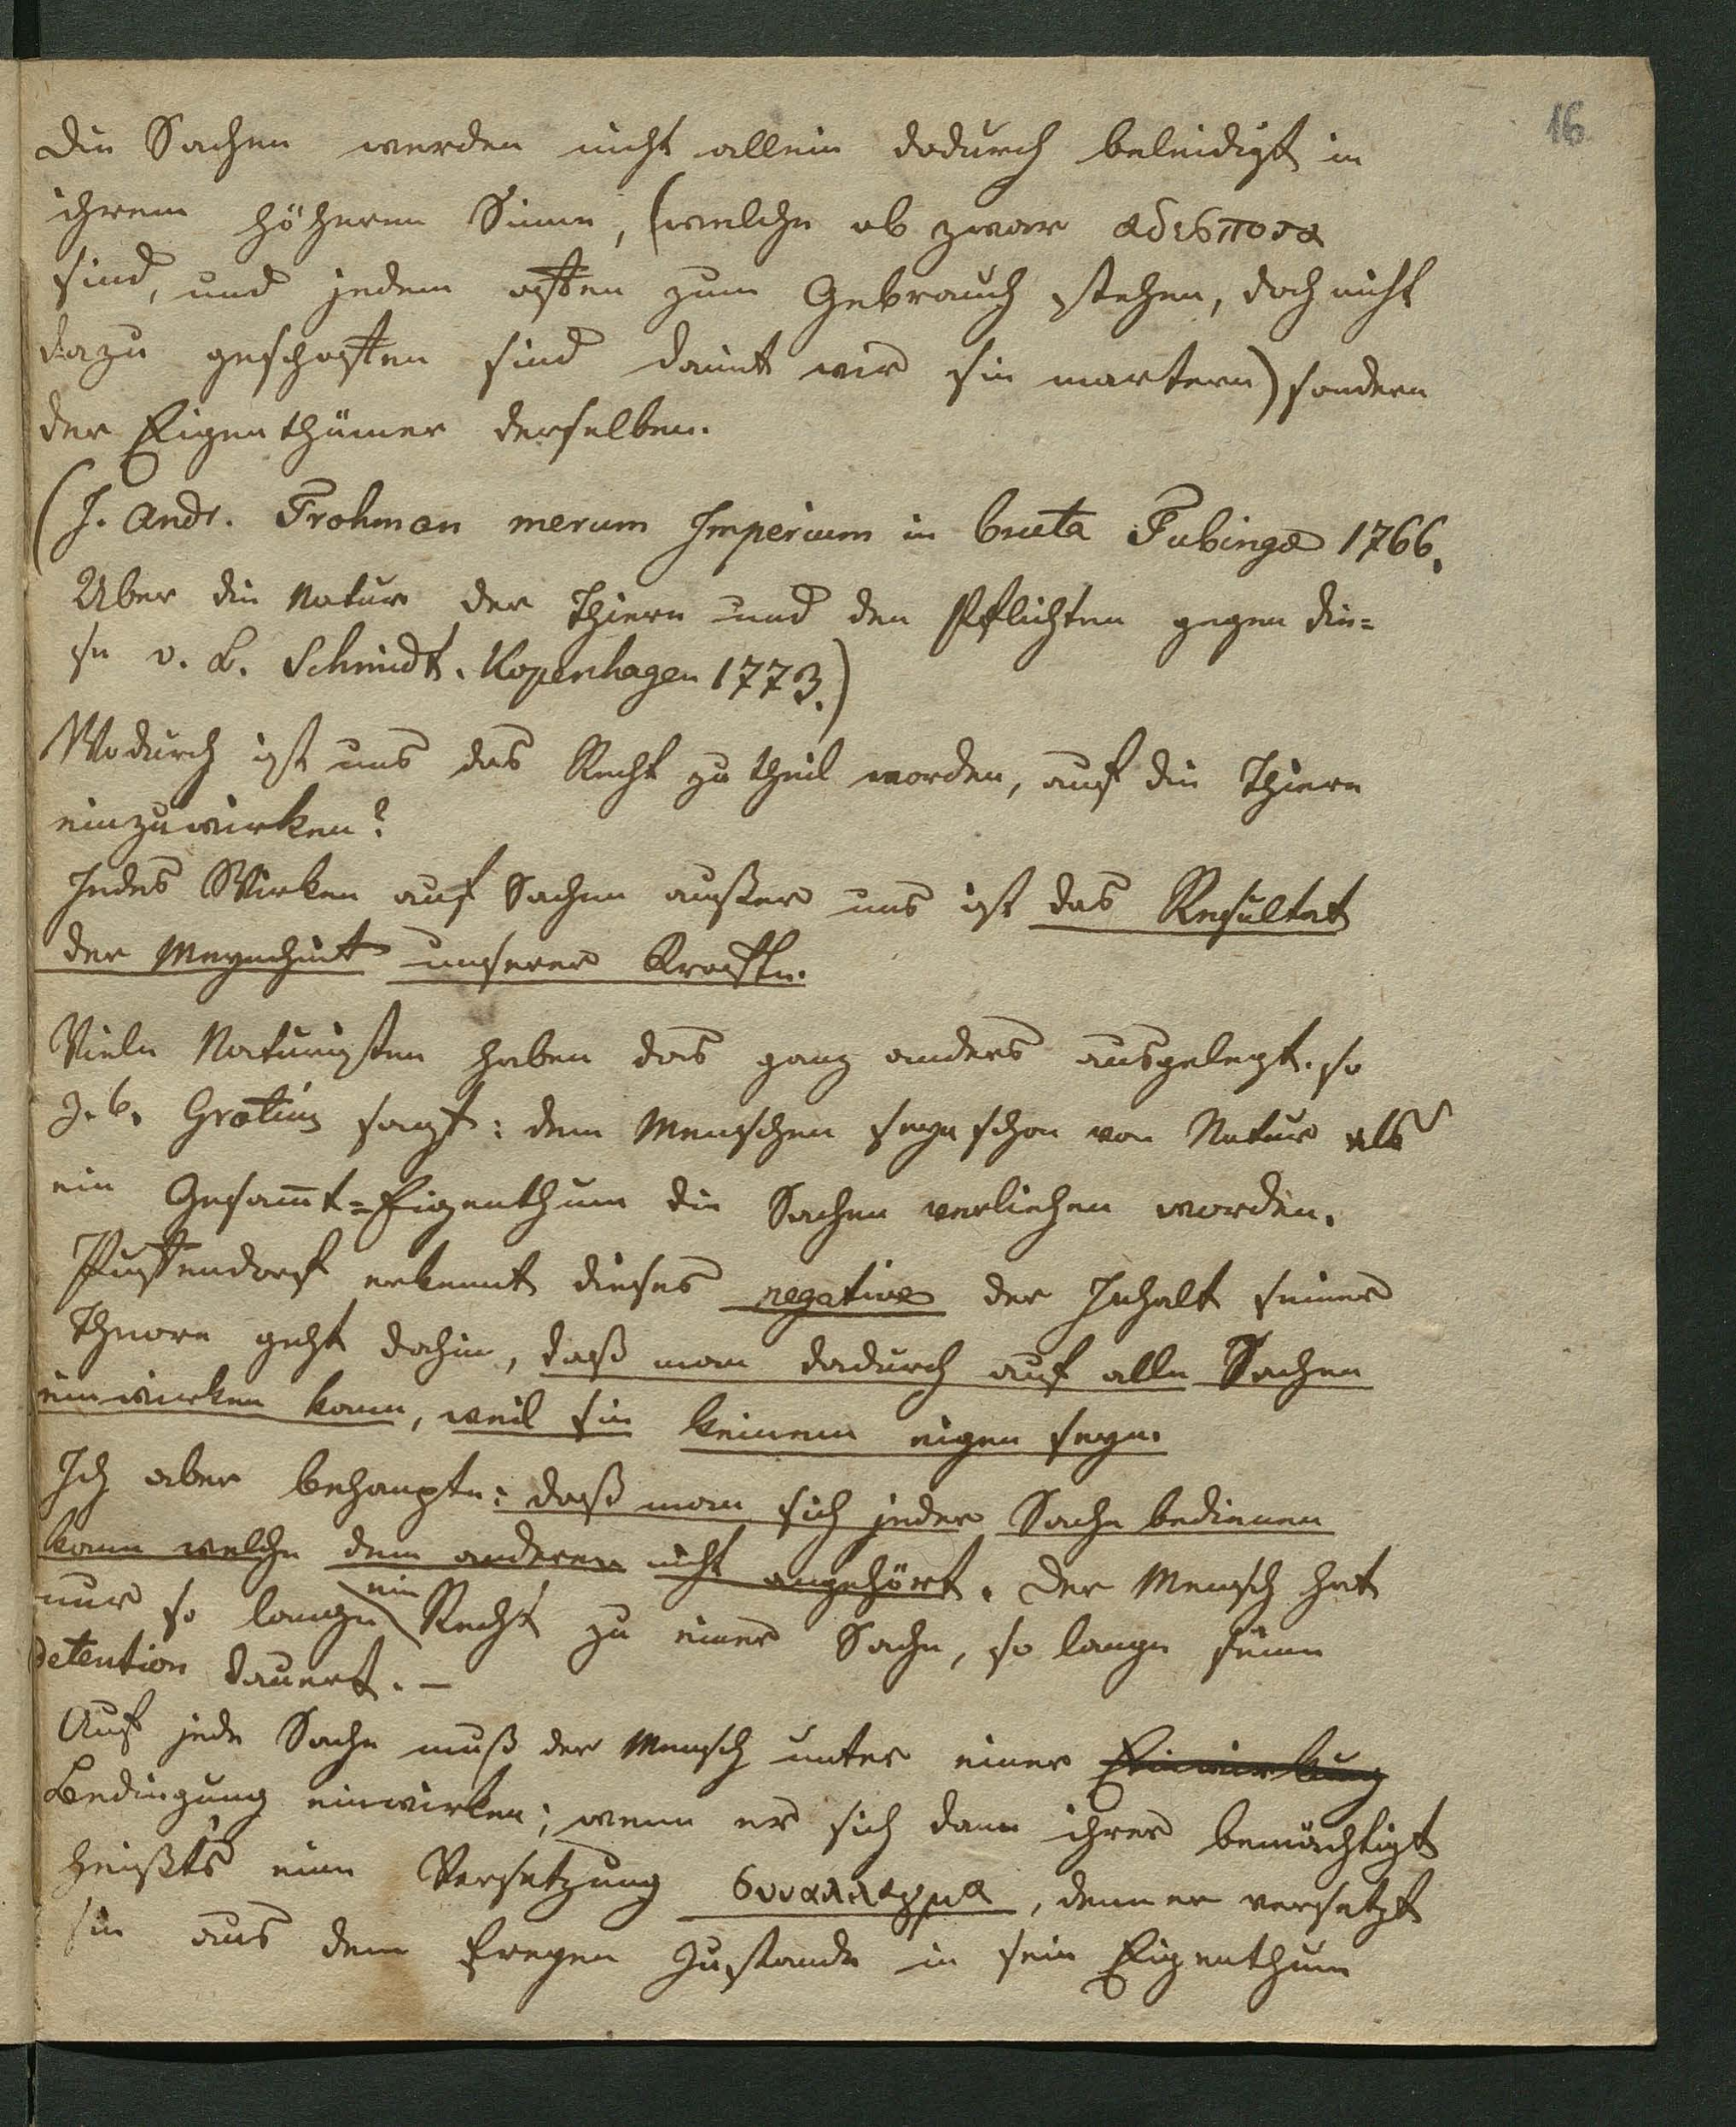 16
die Sachen werden nicht allein dadurch beleidigt in
ihrem höherm Sinne, (welche ob zwar αδεσποτα
sind, und jedem offen zum Gebrauch stehen, doch nicht
dazu geschaffen sind damit wir sie martern) sondern
der Eigenthümer derselben.
(J. Andr. Frohman merum Imperium in bruta Tubingæ 1766.
Uber die Natur der Thiere und den Pflichten gegen die=
se v. L. Schmidt. Kopenhagen 1773.)
Wodurch ist uns das Recht zu theil worden, auf die Thiere
einzuwirken?
Jedes Wirken auf Sachen außer uns ist das Resultat
der unserer Kraefte.
Viele Naturisten haben das ganz anders ausgelegt. so
z. b. Grotius sagt: dem Menschen seye schon von Natur als
ein Gesam̅t=Eigenthum die Sachen verliehen worden.
Puffendorf erkennt dieses negative der Inhalt seiner
Theorie geht dahin, daß man dadurch auf alle Sachen
einwirken kann, weil sie keinem eigen seyn.
Ich aber behaupte: daß man sich jeder Sache bedienen
kann welche dem anderen nicht angehört. Der Mensch hat
nur so lange ein Recht zu einer Sache, so lange seine
detention dauert. –
Auf jede Sache muß der Mensch unter einer Einwirkung
Bedingung einwirken; wenn er sich dann ihrer bemächtigt
heißt's eine Versetzung συναλλαγμα, denn er versetzt
sie aus dem freyen Zustande in sein Eigenthum